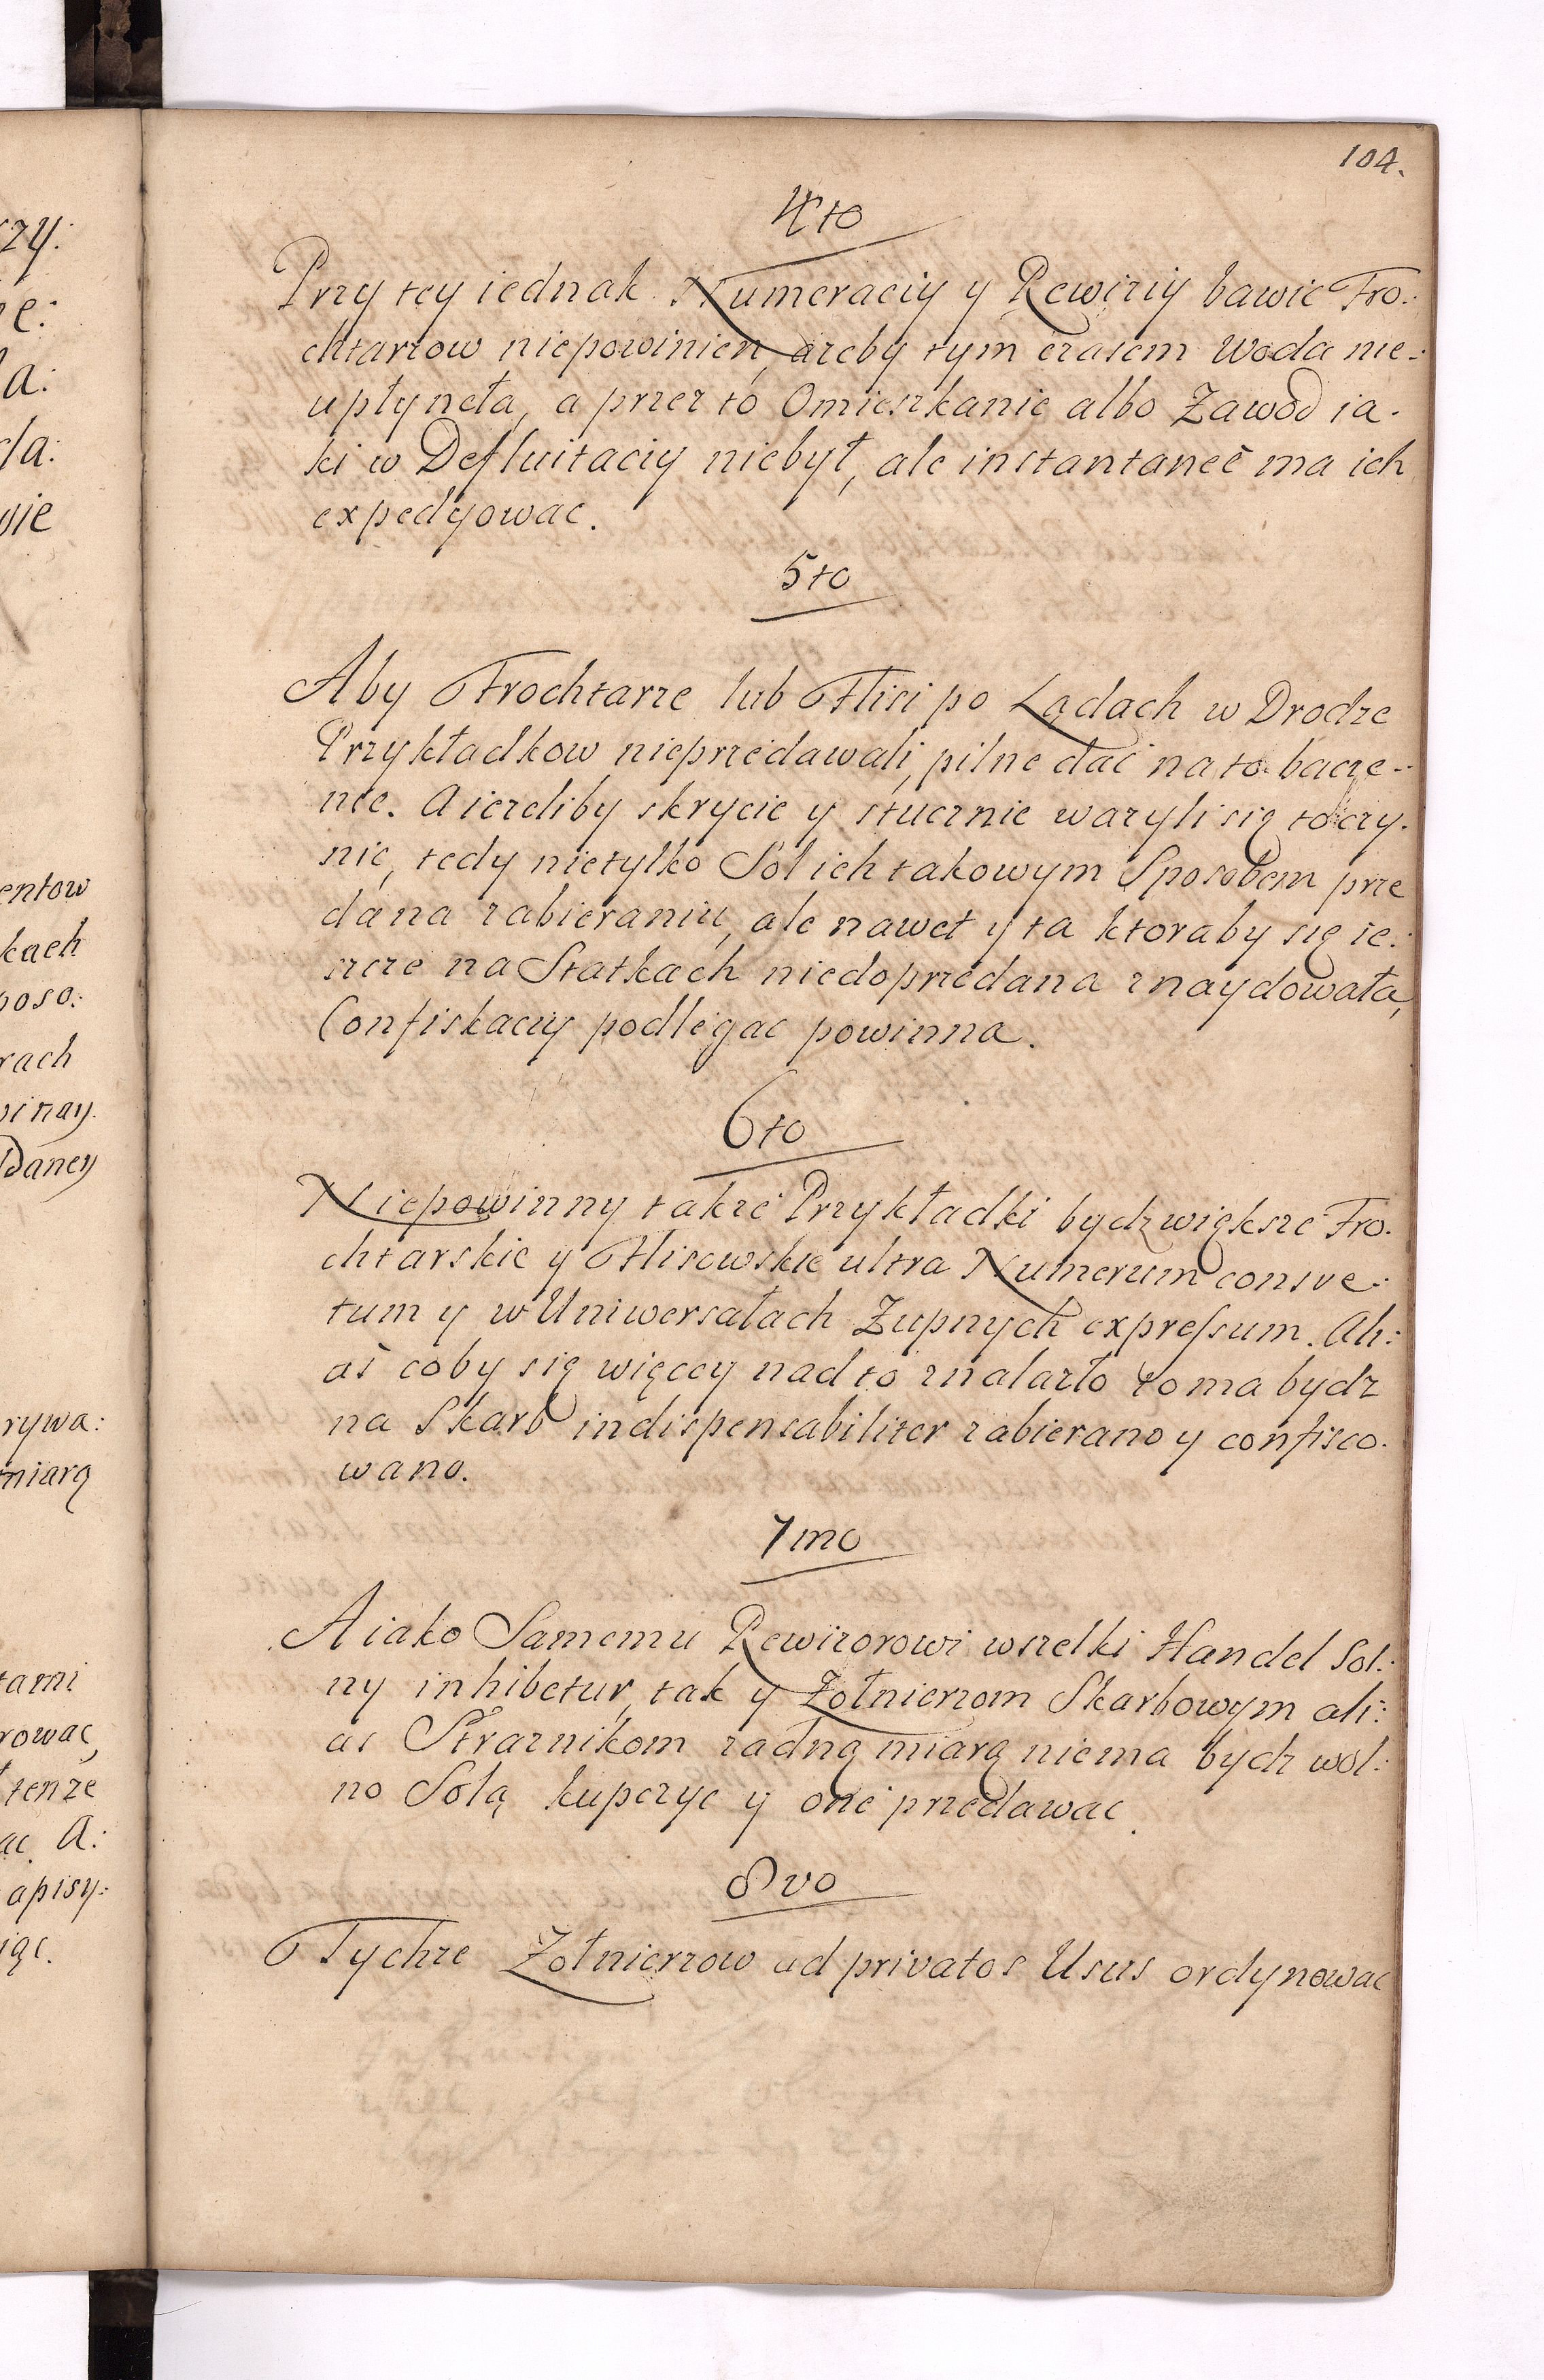 104.
4to
Przy tey iednak Numeraciy y Rewiziy bawic Fro:
chtarzow niepowinien, azeby tym czasem Woda nie:
upłyneła, a przez to Omieszkanie albo Zawod ia:
ki w Defluitaciy niebył, ale instantaneè ma ich
expedyowac.
5to
Aby Frochtarze lub Flisi po Lądach w Drodze
Przykładkow nieprzedawali, pilne dać na to bacze:
nie. A iezeliby skrycie y stucznie wazyli się to czy:
nic, tedy nietylko Sol ich takowym Sposobem prze
dana zabieraniu, ale nawet y ta ktoraby się ie:
szcze na Statkach niedoprzedana znaydowała,
Confiskaciy podlegac powinna.
6to
Niepowinny takze Przykładki bydz większe Fro:
chtarskie y Flisowskie ultra Numerum consve:
tum y w Uniwersałach Zupnych expressum. Ali:
as coby się więcey nad to znalazło to ma bydz
na Skarb indispensabiliter zabierano y confisco:
wano.
7mo
A iako Samemu Rewizorowi wszelki Handel Sol:
ny inhibetur, tak y Zołnierzom Skarbowym ali:
as Straznikom zadną miarą niema bydz wol:
no Solą kupczyc y one przedawac.
8vo
Tychze Zołnierzow ad privatos Usus ordynowac
zy:
e:
la:
da:
wie
entow
kach
poso:
rach
winay.
Daney
rywa:
miarą
tarni
rowac,
tenze
ac. A:
apisy:
iąc.